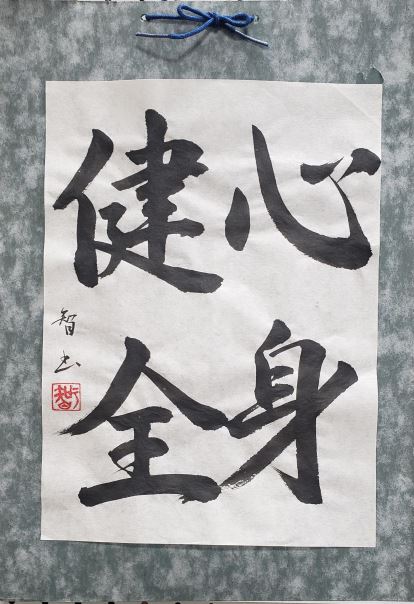 心身
健全
智書
智